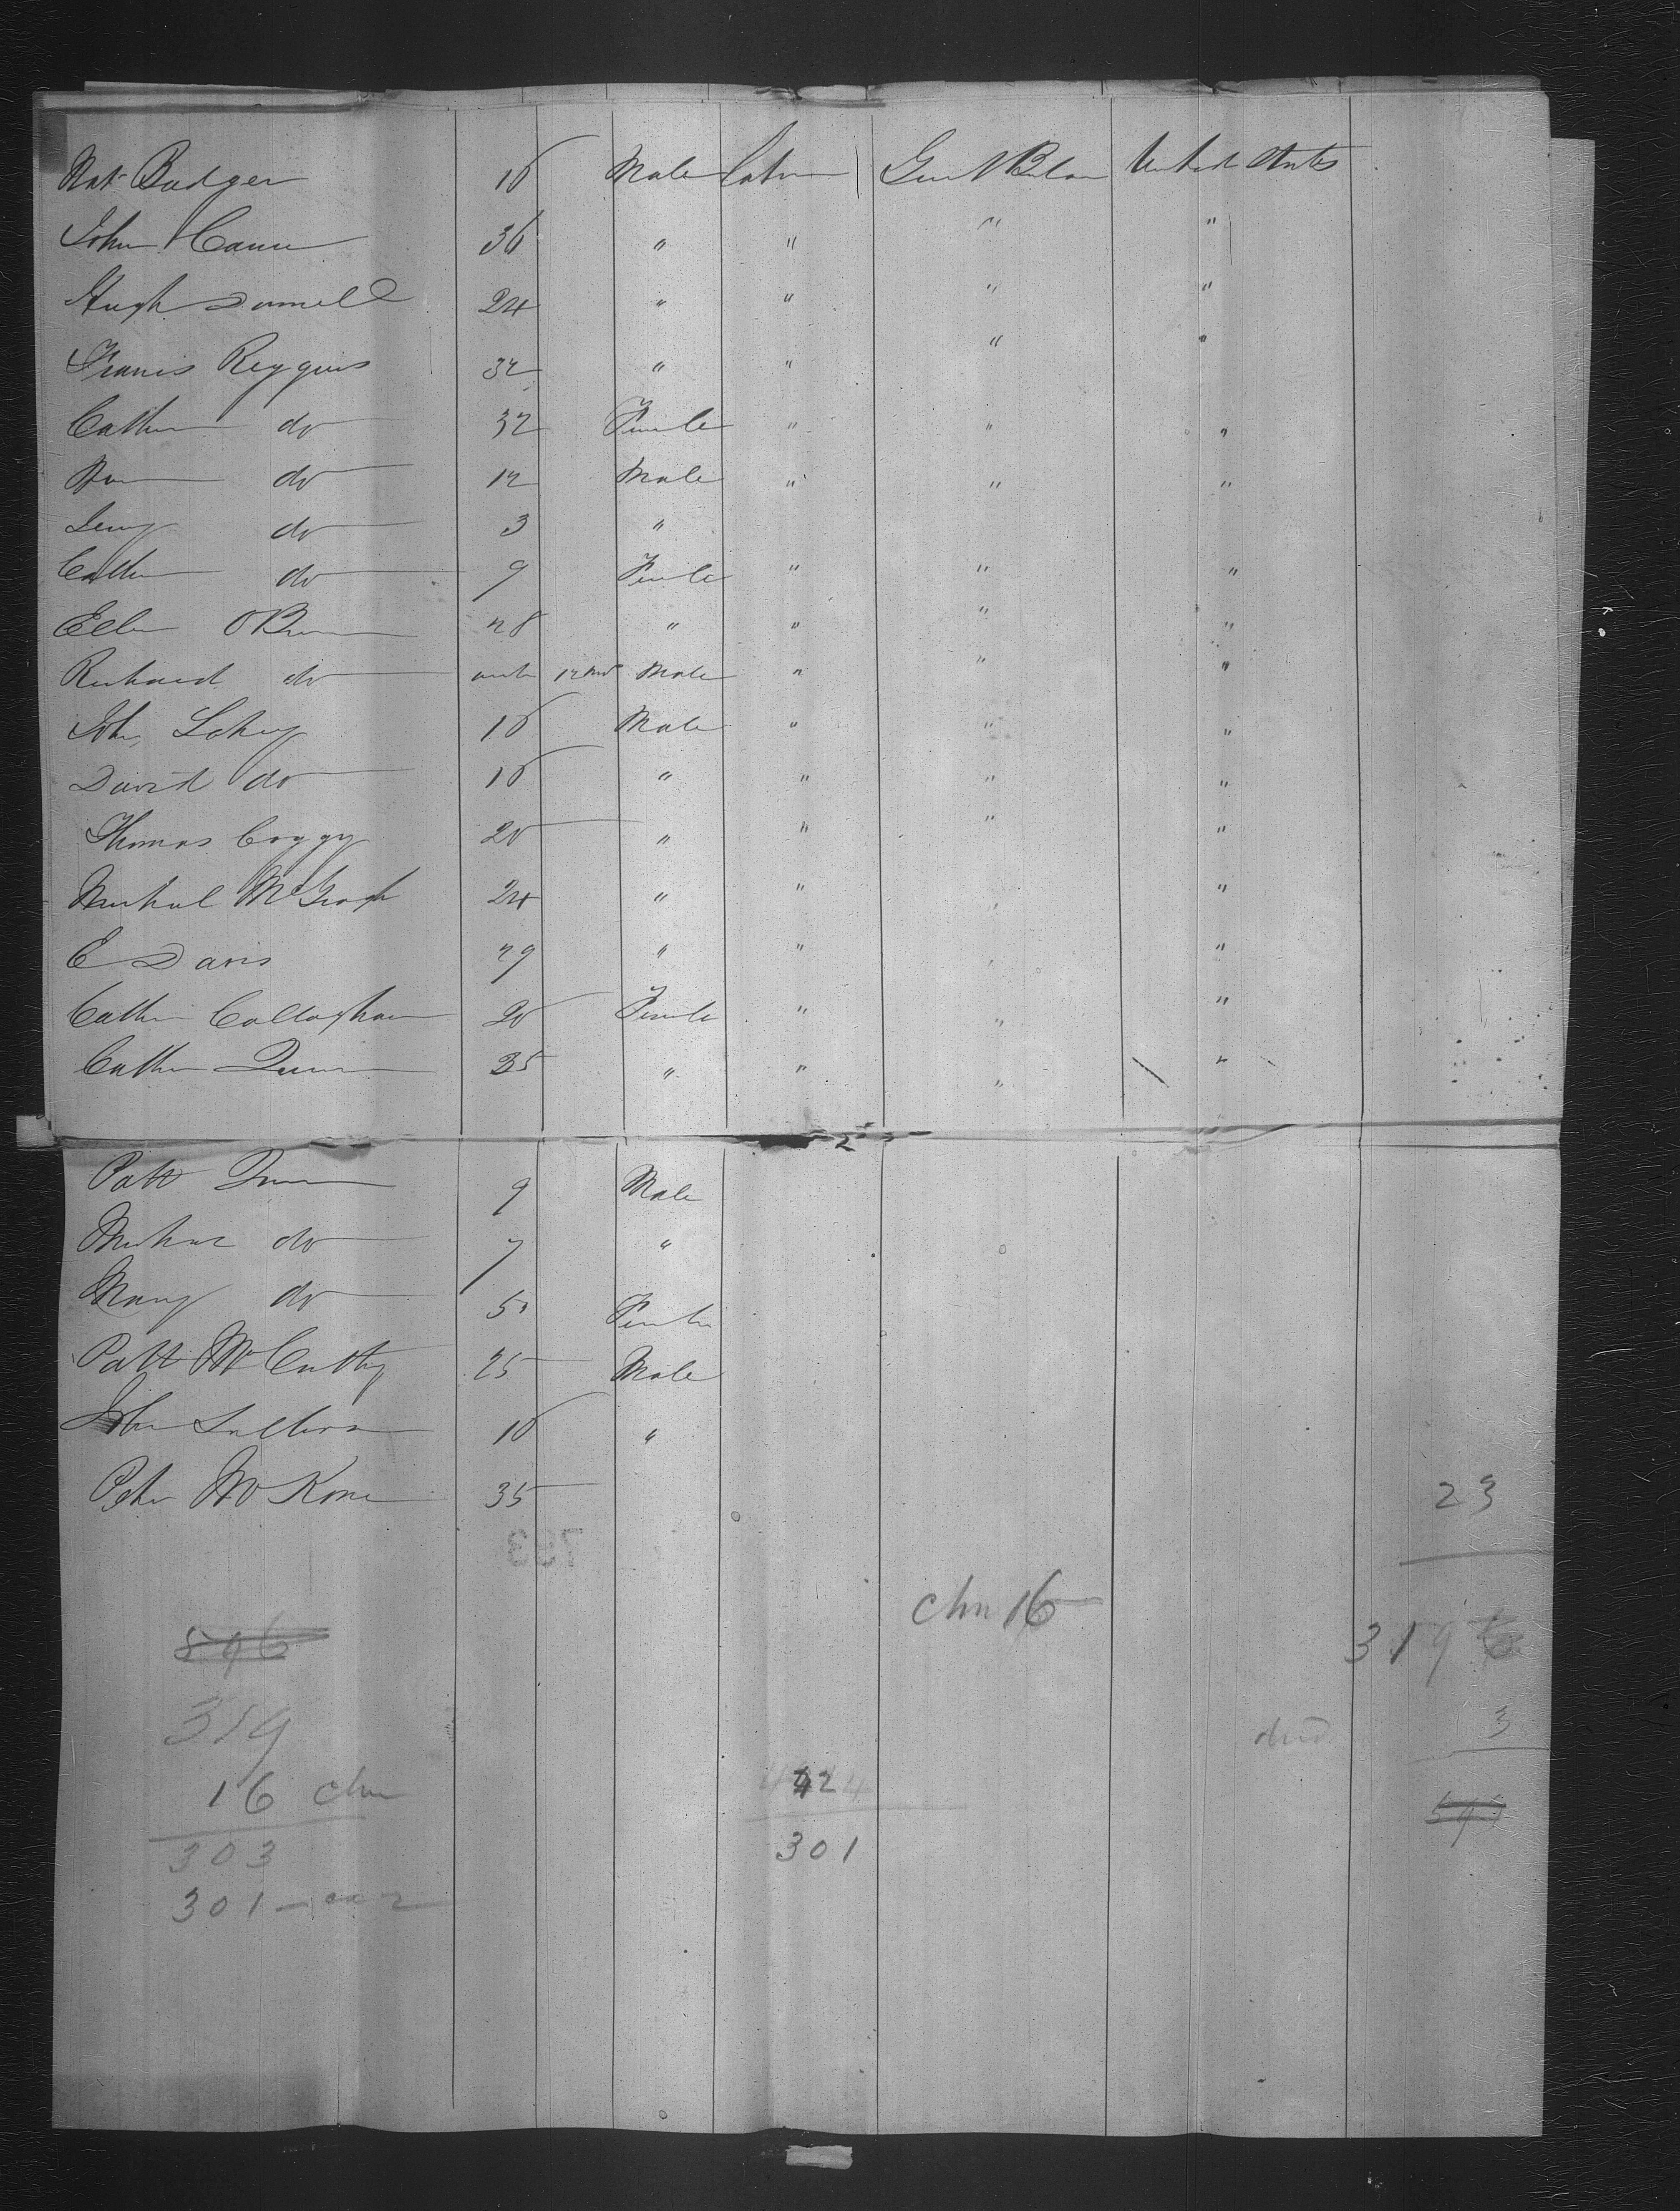 Nat Badger 18 Male Labr Great Britain United States
John Cann 36 " " " "
Hugh Donnell 24 " " " "
Francis Reyguis 32 " " " "
Cathn do 32 Female " " "
do 12 Male " " "
do 3 "
Cathn do 9 Female " " "
Ellen OBrien 28 " " " "
Richard do 12 Mo Male "
John Lahey 18 Male " " "
David do 18 " " " "
Thomas Coggy 20 " " " "
Michael McGragh 24 " " " "
E Davis 29 " " " "
Cathn Callaghan 20 Female " " "
Cathn Quinn 35 " " " "
Patt Quinn 9 Male
Michae do 7 "
Mary do 5 Female
Patt McCarthy 25 Male
John Sullivan 18 "
Peter McKone 35
23
793
chn 16
596
319 6
319
3
16 chn
424
303
301
301 -